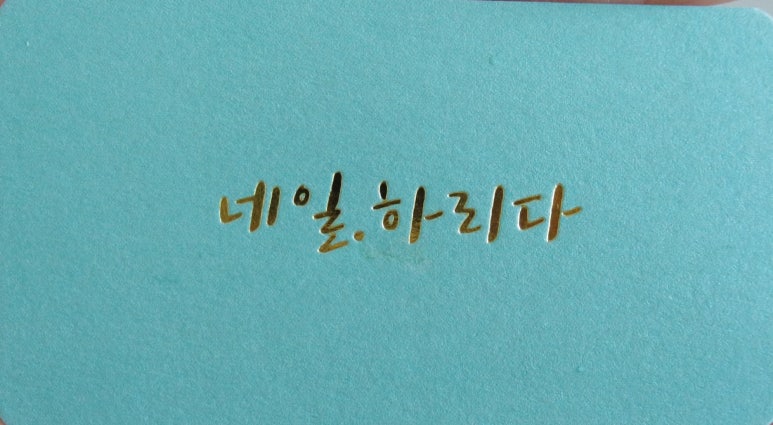 네일.하리다